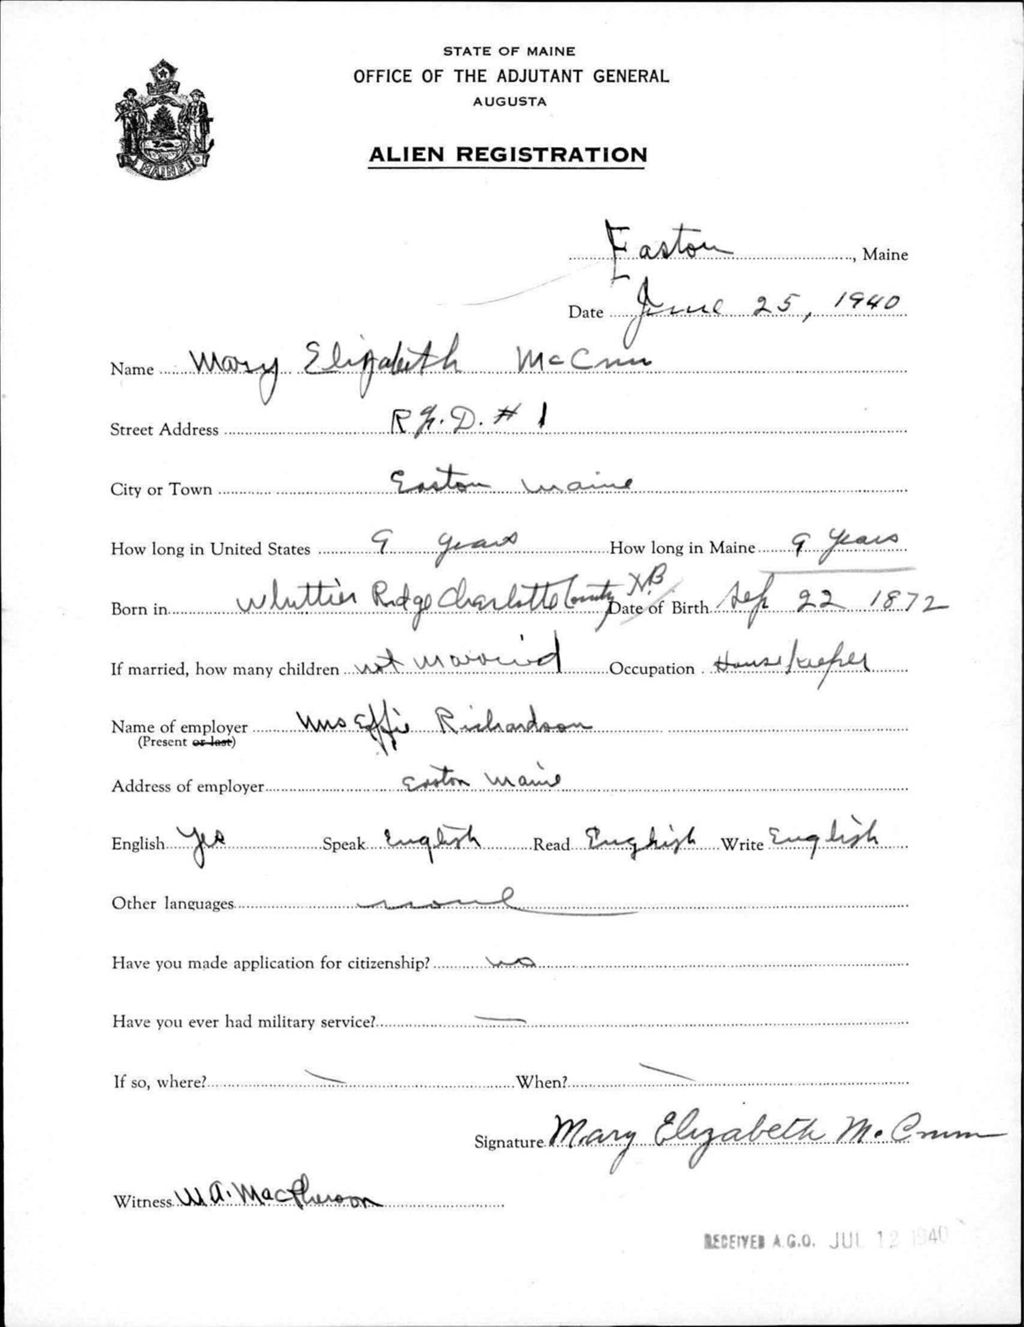 STATE OF MAINE
OFFICE OF THE ADJUTANT GENERAL
AUGUSTA
ALIEN REGISTRATION
MAINE
Easton, Maine
Date June 25, 1940
Name Mary Elizabeth McCann
Street Address R.F.D. # 1
City or Town Easton Maine
How long in United States 9 years How long in Maine 9 years
Born in Whittier Ridge Charlotte County N.B Date of Birth Sep 22 1872
If married, how many children not married Occupation House keeper
Name of employer Mrs Effie Richardson
(Present or last)
Address of employer Easton Maine
English Yes Speak English Read English Write English
Other languages none
Have you made application for citizenship? no
Have you ever had military service? —
If so, where? — When? —
Signature Mary Elizabeth Mc
Witness W.A. MacPherson
RECEIVED A.G.O. JUL 12 1940